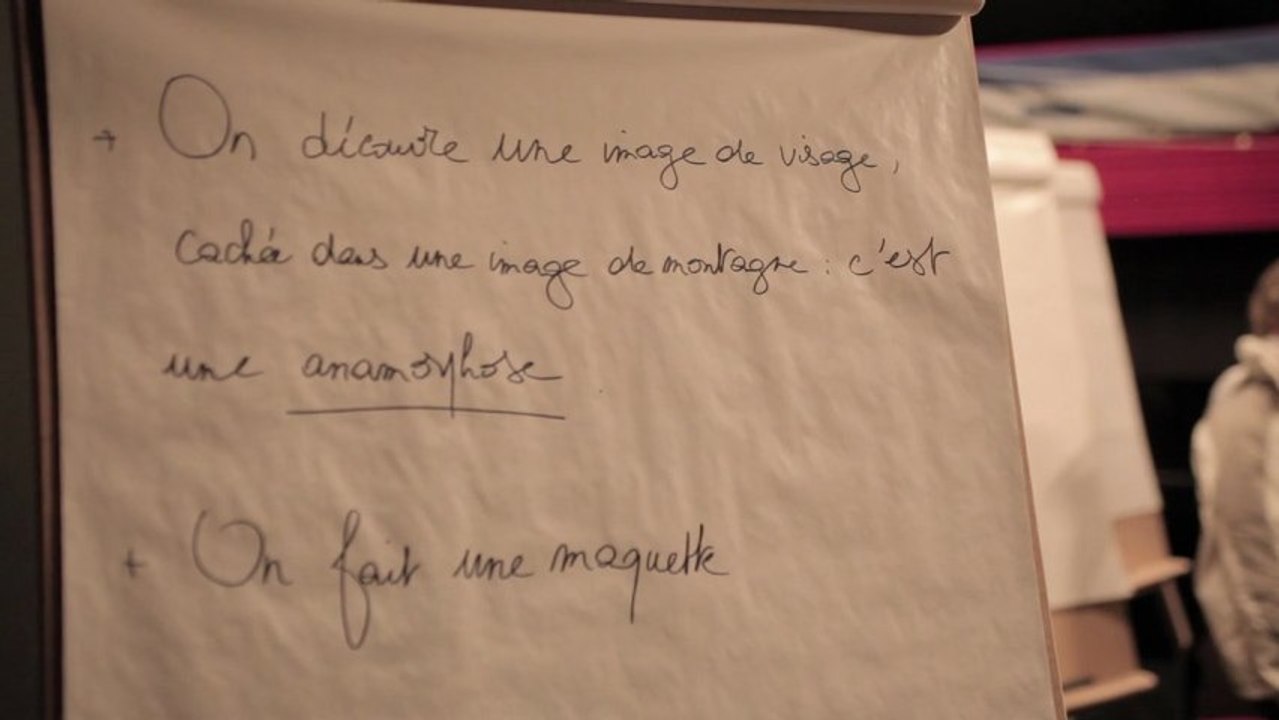 + On découvre une image de visage,
cachée dans une image de montagne : c'est
une anamorphose
+ On fait une maquette